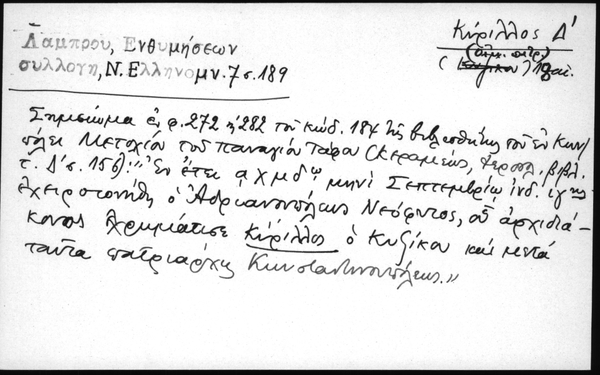 Λάμπρου, Ενθυμήσεων
συλλογή, Ν. Ελληνομν. 7 σ. 189
Κύριλλος Δ'
(οἰκ. πατρ.)
Σημείωμα ἐν φ. 272 ἢ 282 τοῦ κώδ. 184 τῆς βιβλιοθήκης τοῦ ἐν Κων/
πόλει Μετοχίου τοῦ παναγίου Τάφου (Κεραμεύς, Ἱεροσολ. βιβλ.
τ. Δ' σ. 156). "Ἐν ἔτει αχμδῳ, μηνὶ Σεπτεμβρίῳ ἰνδ. ιγης
ἐχειροτονήθη ὁ Ἀδριανουπόλεως Νεόφυτος, οὗ ἀρχιδιά-
κονος ἐχρημάτισε Κύριλλος ὁ Κυζίκου καὶ μετὰ
ταῦτα πατριάρχης Κωνσταντινουπόλεως."